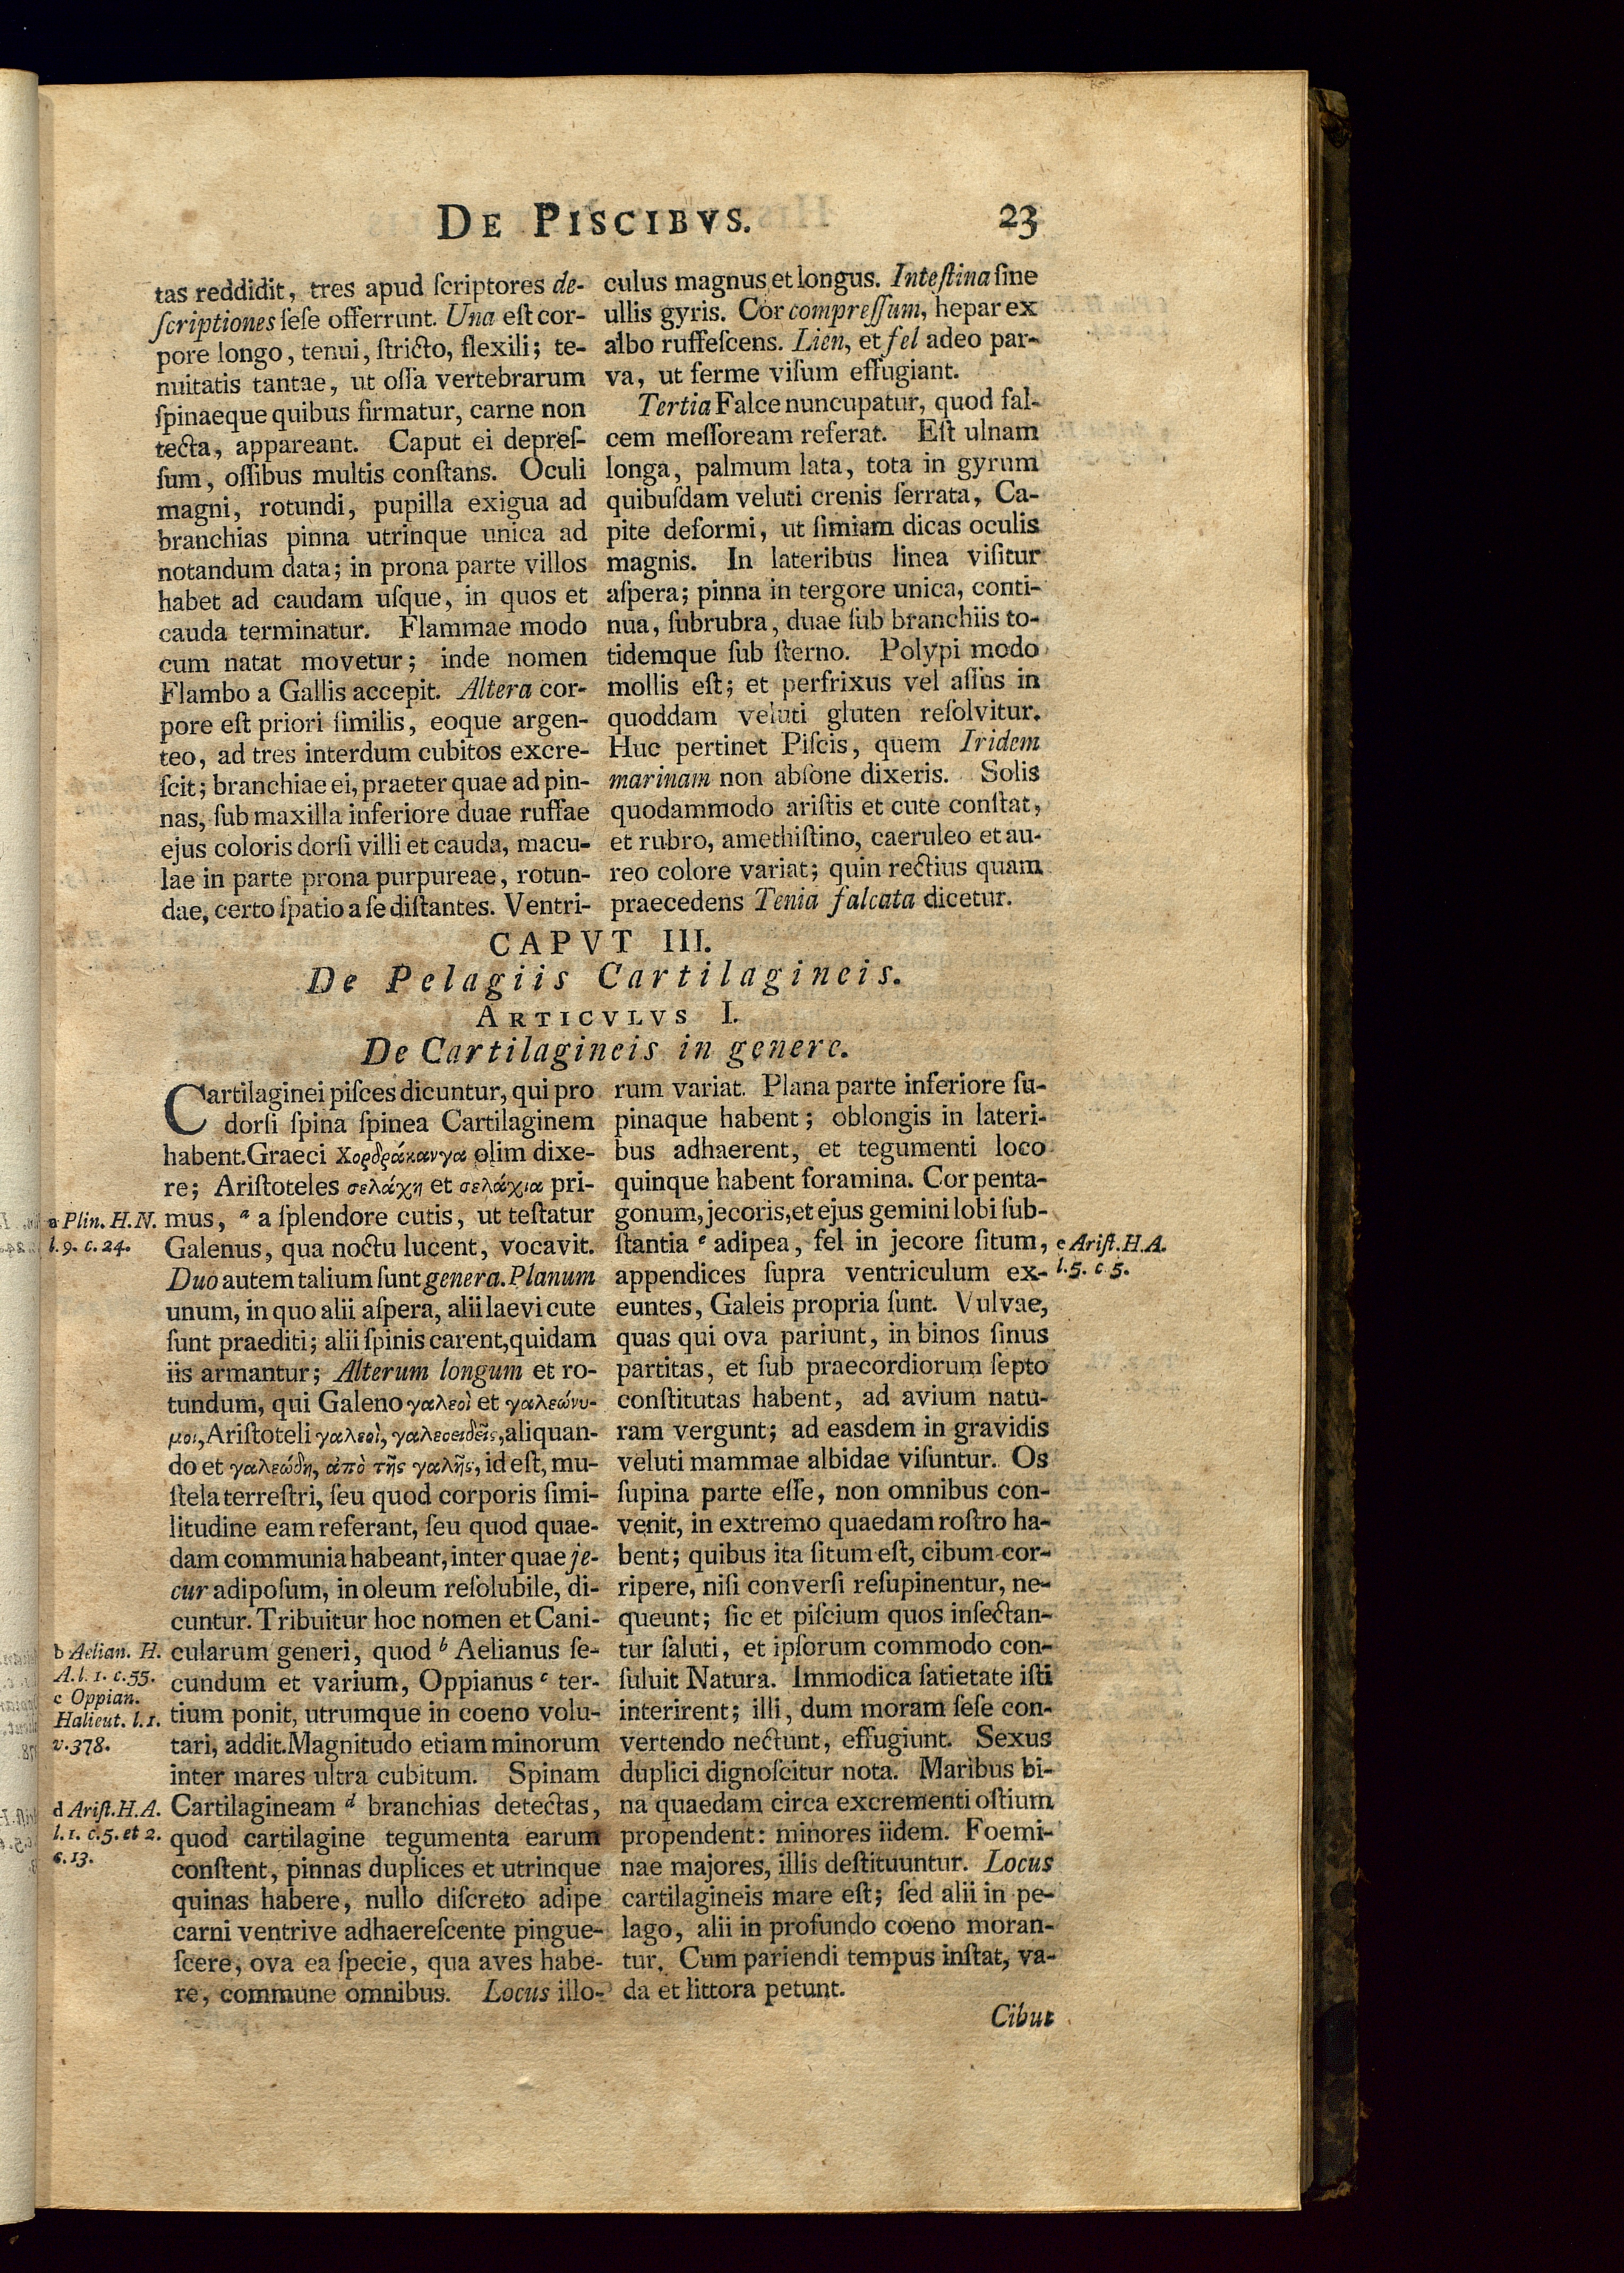 DE PISCIBVS.
23
tas reddidit, tres apud ſcriptores de-
ſcriptiones ſeſe offerrunt. Una eſt cor-
pore longo, tenui, ſtricto, flexili; te-
nuitatis tantae, ut oſſa vertebrarum
ſpinaeque quibus firmatur, carne non
tecta, appareant. Caput ei depreſ-
ſum, oſſibus multis conſtans. Oculi
magni, rotundi, pupilla exigua ad
branchias pinna utrinque unica ad
notandum data; in prona parte villos
habet ad caudam uſque, in quos et
cauda terminatur. Flammae modo
cum natat movetur; inde nomen
Flambo a Gallis accepit. Altera cor-
pore eſt priori ſimilis, eoque argen-
teo, ad tres interdum cubitos excre-
ſcit; branchiae ei, praeter quae ad pin-
nas, ſub maxilla inferiore duae ruffae
ejus coloris dorſi villi et cauda, macu-
lae in parte prona purpureae, rotun-
dae, certo ſpatio a ſe diſtantes. Ventri-
culus magnus et longus. Inteſtina ſine
ullis gyris. Cor compreſſum, hepar ex
albo ruffeſcens. Lien, et fel adeo par-
va, ut ferme viſum effugiant.
Tertia Falce nuncupatur, quod fal-
cem meſſoream referat. Eſt ulnam
longa, palmum lata, tota in gyrum
quibuſdam veluti crenis ſerrata, Ca-
pite deformi, ut ſimiam dicas oculis
magnis. In lateribus linea viſitur
aſpera; pinna in tergore unica, conti-
nua, ſubrubra, duae ſub branchiis to-
tidemque ſub ſterno. Polypi modo
mollis eſt; et perfrixus vel aſſus in
quoddam veluti gluten reſolvitur.
Huc pertinet Piſcis, quem Iridem
marinam non abſone dixeris. Solis
quodammodo ariſtis et cute conſtat,
et rubro, amethiſtino, caeruleo et au-
reo colore variat; quin rectius quam
praecedens Tenia falcata dicetur.
CAPVT III.
De Pelagiis Cartilagineis.
ARTICVLVS I.
De Cartilagineis in genere.
Cartilaginei piſces dicuntur, qui pro
dorſi ſpina ſpinea Cartilaginem
habent. Graeci Χορδράκανγα olim dixe-
re; Ariſtoteles σελάχη et σελάχια pri-
mus, a a ſplendore cutis, ut teſtatur
Galenus, qua noctu lucent, vocavit.
Duo autem talium ſunt genera. Planum
unum, in quo alii aſpera, alii laevi cute
ſunt praediti; alii ſpinis carent, quidam
iis armantur; Alterum longum et ro-
tundum, qui Galeno γαλεοὶ et γαλεώνυ-
μοι, Ariſtoteli γαλεοὶ, γαλεοειδεῖς, aliquan-
do et γαλεώδη, ἀπὸ τῆς γαλῆς, id eſt, mu-
ſtela terreſtri, ſeu quod corporis ſimi-
litudine eam referant, ſeu quod quae-
dam communia habeant, inter quae je-
cur adipoſum, in oleum reſolubile, di-
cuntur. Tribuitur hoc nomen et Cani-
cularum generi, quod b Aelianus ſe-
cundum et varium, Oppianus c ter-
tium ponit, utrumque in coeno volu-
tari, addit. Magnitudo etiam minorum
inter mares ultra cubitum. Spinam
Cartilagineam d branchias detectas,
quod cartilagine tegumenta earum
conſtent, pinnas duplices et utrinque
quinas habere, nullo diſcreto adipe
carni ventrive adhaereſcente pingue-
ſcere, ova ea ſpecie, qua aves habe-
re, commune omnibus. Locus illo-
a Plin. H. N.
l. 9. c. 24.
b Aelian. H.
A. l. 1. c. 55.
c Oppian.
Halieut. l. 1.
v. 378.
d Ariſt. H. A.
l. 1. c. 5. et 2.
c. 13.
rum variat. Plana parte inferiore ſu-
pinaque habent; oblongis in lateri-
bus adhaerent, et tegumenti loco
quinque habent foramina. Cor penta-
gonum, jecoris, et ejus gemini lobi ſub-
ſtantia e adipea, fel in jecore ſitum,
appendices ſupra ventriculum ex-
euntes, Galeis propria ſunt. Vulvae,
quas qui ova pariunt, in binos ſinus
partitas, et ſub praecordiorum ſepto
conſtitutas habent, ad avium natu-
ram vergunt; ad easdem in gravidis
veluti mammae albidae viſuntur. Os
ſupina parte eſſe, non omnibus con-
venit, in extremo quaedam roſtro ha-
bent; quibus ita ſitum eſt, cibum cor-
ripere, niſi converſi reſupinentur, ne-
queunt; ſic et piſcium quos inſectan-
tur ſaluti, et ipſorum commodo con-
ſuluit Natura. Immodica ſatietate iſti
interirent; illi, dum moram ſeſe con-
vertendo nectunt, effugiunt. Sexus
duplici dignoſcitur nota. Maribus bi-
na quaedam circa excrementi oſtium
propendent: minores iidem. Foemi-
nae majores, illis deſtituuntur. Locus
cartilagineis mare eſt; ſed alii in pe-
lago, alii in profundo coeno moran-
tur. Cum pariendi tempus inſtat, va-
da et littora petunt.
e Ariſt. H. A.
l. 5. c 5.
Cibut